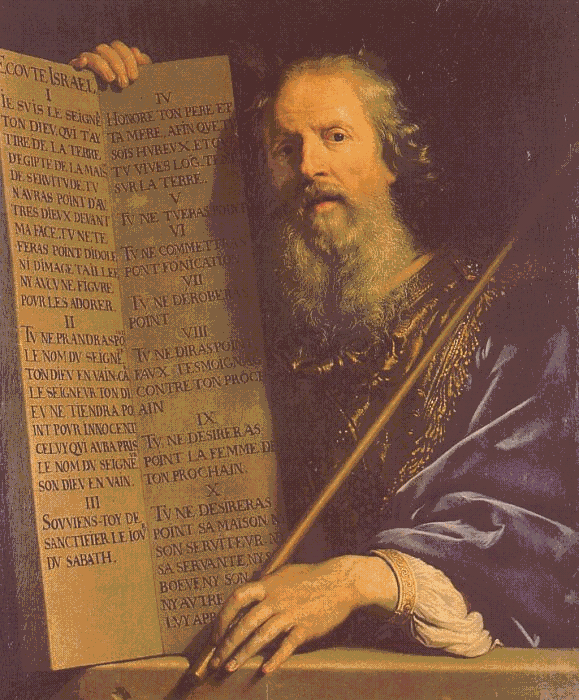 ECOVTE ISRAEL,
I
IE SVIS LE SEIGNE
TON DIEV, QVI T'AY
TIRE DE LA TERRE
D'EGIPTE DE LA MAIS
DE SERVITVDE. TV
N'AVRAS POINT D'AV
TRES DIEVX DEVANT
MA FACE. TV NE TE
FERAS POINT D'IDOLE
NI D'IMAGE TAILLEE
NY AVCVNE FIGVRE
POVR LES ADORER.
II
TV NE PRANDRAS PO
LE NOM DV SEIGNE
TON DIEV EN VAIN. CA
LE SEIGNEVR TON DI
EV NE TIENDRA PO
INT POVR INNOCENT
CELVY QVI AVRA PRIS
LE NOM DV SEIGNE
SON DIEV EN VAIN.
III
SOVVIENS-TOY DE
SANCTIFIER LE IOVR
DV SABATH.
IV
HONORE TON PERE ET
TA MERE, AFIN QVE T
SOIS HVREVX ET Q
TV VIVES LOG. TEM
SVR LA TERRE.
V
TV NE TVERAS POINT
VI
TV NE COMMETTRAS
POINT FONICATION
VII
TV NE DEROBERAS
POINT
VIII
TV NE DIRAS POIN
FAVX TESMOIGNAG
CONTRE TON PROCH
AIN
IX
TV NE DESIRERAS
POINT LA FEMME DE
TON PROCHAIN.
X
TV NE DESIRERAS
POINT SA MAISON N
SON SERVITEVR. NY
SA SERVANTE, NY S
BOEVF, NY SON
NY AVTRE
LVY APP